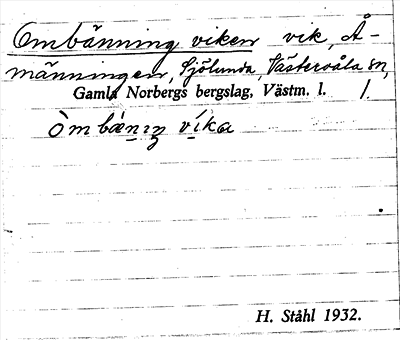 Ombänning viken vik, Å-
männingen, Sjölunda, Västervåla sn,
Gamla Norbergs bergslag, Västm. l. 1.
òm bǽnıŋ víka
H. Ståhl 1932.